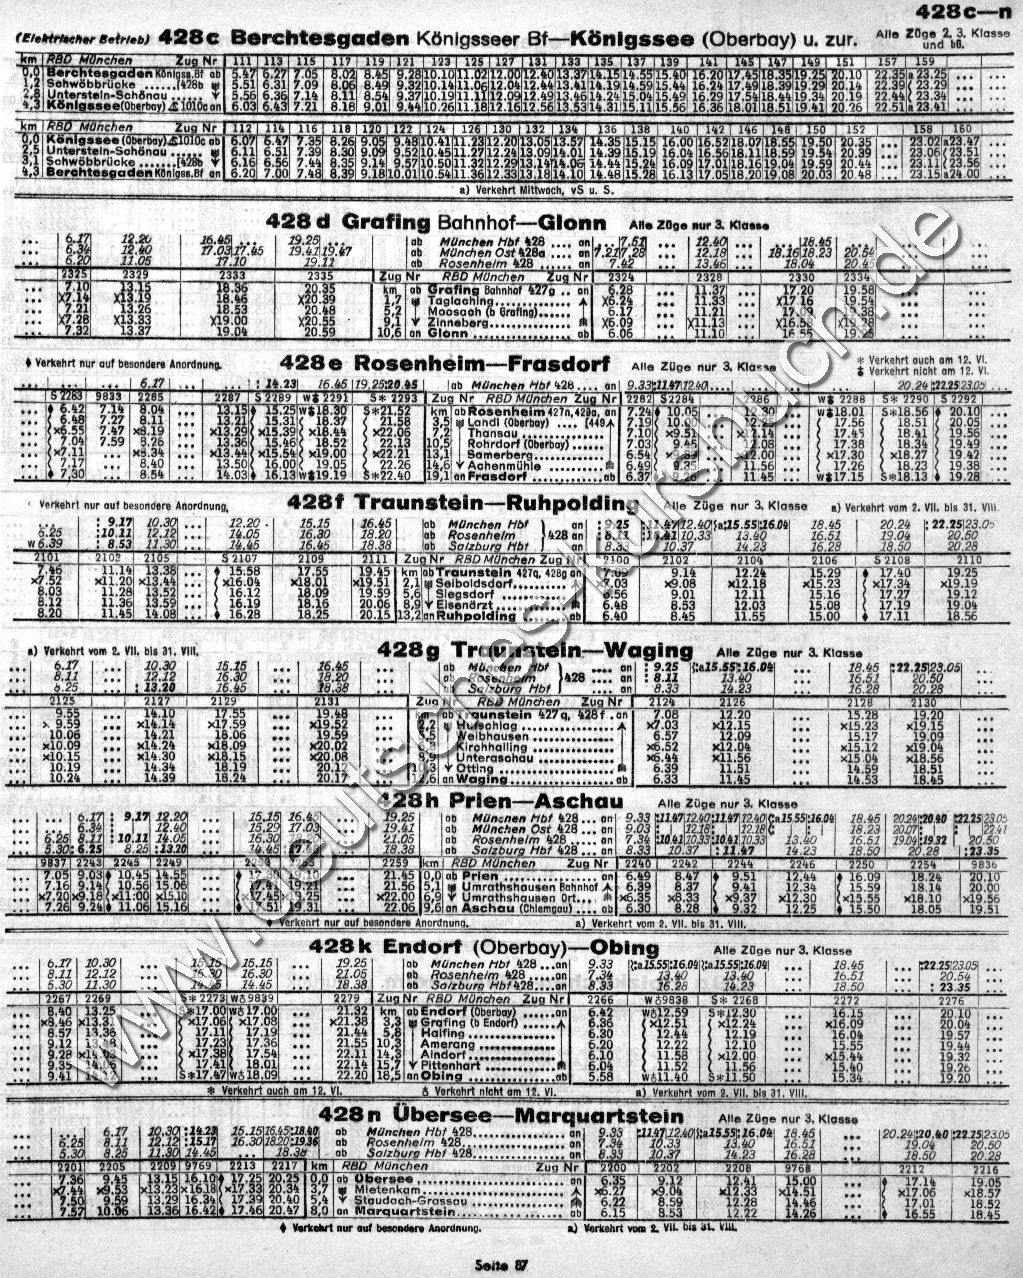 428c—n
(Elektrischer Betrieb) 428c Berchtesgaden Königsseer Bf—Königssee (Oberbay) u. zur. Alle Züge 2, 3. Klasse und bG.
km RBD München Zug Nr 111 113 115 117 119 121 123 125 127 131 133 135 137 139 141 145 147 149 151 157 159
0,0 Berchtesgaden Königss.Bf ab 5.47 6.27 7.05 8.02 8.45 9.28 10.10 11.02 12.00 12.40 13.37 14.15 14.55 15.40 16.20 17.45 18.35 19.25 20.10 22.35 a 23.25
1,2 Schwöbbrücke
2,5 Unterstein-Schönau
4,3 Königssee (Oberbay) 1010c an 6.03 6.43 7.21 8.18 9.01 9.44 10.26 11.18 12.16 12.56 13.53 14.31 15.11 15.56 16.36 18.01 18.51 19.41 20.26
km RBD München Zug Nr 112 114 116 118 120 122 124 126 130 132 134 136 138 140 142 146 148 150 152 158 160
0,0 Königssee (Oberbay) 1010c ab 6.07 6.47 7.35 8.26 9.05 9.48 10.41 11.23 12.20 13.05 13.57 14.35 15.15 16.00 16.52 18.07 18.55 19.50 20.35 23.02 a 23.47
2,5 Unterstein-Schönau
3,1 Schwöbbrücke
4,3 Berchtesgaden Königss.Bf an 6.20 7.00 7.48 8.39 9.18 10.01 10.54 11.36 12.33 13.18 14.10 14.48 15.28 16.13 17.05 18.20 19.08 20.03 20.48 23.15 a 24.00
a) Verkehrt Mittwoch, vS u. S.
428d Grafing Bahnhof—Glonn Alle Züge nur 3. Klasse
6.17 12.20 16.45 19.25 ab München Hbf 428 an 7.51 12.40 18.45
6.34 12.40 17.03 17.45 19.41 19.47 ab München Ost 428a an 7.21 7.28 12.18 18.16 18.23 20.54
6.20 11.05 17.10 19.11 ab Rosenheim 428 an 7.42 13.46 18.04 20.45
2325 2329 2333 2335 Zug Nr RBD München Zug Nr 2324 2328 2330 2334
7.10 13.15 18.36 20.35 km ab Grafing Bahnhof 427g an 6.28 11.37 17.20 19.58
x7.14 x13.19 18.46 x20.39 1,7 Taglaching x6.24 11.33 x17.16 19.54
7.21 13.26 18.53 20.48 5,2 Moosach (b Grafing) 6.17 11.21 17.09
x7.28 x13.33 x19.00 x20.55 9,1 Zinneberg x6.09 x11.13
7.32 13.37 19.04 20.59 10,6 an Glonn ab 6.06 11.10 16.55
♦ Verkehrt nur auf besondere Anordnung. 428e Rosenheim—Frasdorf Alle Züge nur 3. Klasse * Verkehrt auch am 12. VI.
Verkehrt nicht am 12. VI.
6.17 14.23 16.45 19.25 20.45 ab München Hbf 428 an 9.33 11.47 12.40 20.24 22.25 23.05
S 2283 9833 2285 2287 S 2289 2291 S* 2293 Zug Nr RBD München Zug Nr 2282 S 2284 2286 2288 S* 2290 S 2292
♦ 6.42 7.14 8.04 13.15 ♦ 15.25 18.30 S*21.52 km ab Rosenheim 427n, 428a, an 7.24 ♦ 10.05 12.30 18.01 S*18.56 ♦ 20.10
6.48 7.27 8.11 13.21 15.31 18.37 21.58 3,5 Landl (Oberbay) 7.19 17.56 18.51 20.05
x6.55 7.47 x8.19 x13.29 x15.39 x18.44 x22.06 7,2 Thansau 7.10 x9.51 17.45 18.41 19.56
7.04 7.59 8.26 13.36 15.46 18.52 22.13 10,5 Rohrdorf (Oberbay) 7.03 9.45 17.38 18.34 19.49
x7.11 x8.34 x13.44 x15.54 x19.00 x22.21 13,1 Samerberg 6.54 x17.30 x18.27 x19.42
7.17 8.40 13.50 16.00 19.05 22.26 14,6 Achenmühle 6.49 11.56 17.26 18.23 19.38
♦ 7.30 8.54 14.03 ♦ 16.13 19.19 S*22.40 19,1 an Frasdorf ab 6.37 11.45 17.15 S*18.13 ♦ 19.28
Verkehrt nur auf besondere Anordnung. 428f Traunstein—Ruhpolding Alle Züge nur 3. Klasse a) Verkehrt vom 2. VII. bis 31. VIII.
9.17 10.30 12.20 15.15 16.45 ab München Hbf an 9.25 11.47 12.40 a 15.55 16.04 18.45 20.24 22.25 23.05
6.25 10.11 12.12 14.05 16.30 18.20 ab Rosenheim 428 an 8.11 10.33 13.40 16.51 19.04 20.50
6.39 8.53 11.30 14.45 16.45 18.38 ab Salzburg Hbf an 8.33 10.37 14.23 16.28 18.50 20.28
2101 2103 2105 S 2107 2109 2111 Zug Nr RBD München Zug Nr 2100 2102 2104 2106 S 2108 2110
7.46 11.14 13.38 ♦ 15.58 17.55 19.45 km ab Traunstein 427q, 428g an 7.09 9.14 12.24 15.29 ♦ 17.40 19.25
x7.52 x11.20 x13.44 x16.04 x18.01 x19.51 2,1 Seiboldsdorf x7.03 x9.08 x12.18 x15.23 x17.34 x19.19
8.03 11.28 13.52 16.12 18.09 19.59 5,6 Siegsdorf 6.56 9.01 12.11 15.16 17.27 19.12
8.12 11.36 13.59 16.19 18.16 20.06 8,9 Eisenärzt 6.48 8.53 12.03 15.08 17.19 19.04
8.20 11.45 14.08 ♦ 16.28 18.25 20.15 13,2 an Ruhpolding ab 6.40 8.45 11.55 15.00 ♦ 17.11 18.56
a) Verkehrt vom 2. VII. bis 31. VIII. 428g Traunstein—Waging Alle Züge nur 3. Klasse
6.17 10.30 15.15 16.45 ab München Hbf an 9.25 a 15.55 16.04 18.45 22.25 23.05
8.11 12.12 16.30 18.20 ab Rosenheim 428 an 8.11 13.40 16.51 20.50
8.25 13.20 16.45 18.38 ab Salzburg Hbf an 8.33 14.23 16.28 20.28
2125 2127 2129 2131 Zug Nr RBD München Zug Nr 2124 2126 2128 2130
9.55 14.10 17.55 19.48 ab Traunstein 427q, 428f an 7.08 12.20 15.28 19.20
x 9.59 x14.14 x17.59 x19.52 Hufschlag x7.03 x12.15 x15.23 x19.15
10.06 14.21 18.06 19.59 Weibhausen 6.57 12.09 15.17 19.09
x10.09 x14.24 x18.09 x20.02 Kirchhalling x6.52 x12.04 x15.12 x19.04
x10.15 x14.30 x18.15 x20.08 Unteraschau x6.44 x11.56 x15.04 x18.56
10.19 14.34 18.19 20.12 Otting 6.39 11.51 14.59 18.51
10.24 14.39 18.24 20.17 an Waging ab 6.33 11.45 14.53 18.45
428h Prien—Aschau Alle Züge nur 3. Klasse
6.17 9.17 12.20 15.15 16.45 19.25 ab München Hbf 428 an 9.33 11.47 12.40 11.47 12.40 a 15.55 16.04 18.45 20.24 20.40 22.25 23.05
6.34 12.40 15.29 17.03 19.41 ab München Ost 428 an 9.03 12.18 12.18 18.23 20.07 22.41
6.25 8.11 10.11 14.05 16.30 18.20 21.05 ab Rosenheim 428 an 7.34 10.41 10.33 10.41 10.33 13.40 16.51 19.04 19.32 20.50
5.30 6.15 8.25 13.20 14.45 18.38 ab Salzburg Hbf 428 an 8.33 10.37 11.47 14.23 18.50 20.28 23.35
9837 2243 2245 2249 2253 2259 km RBD München Zug Nr 2240 2242 2244 2246 2250 2254 9836
7.05 9.03 ♦ 10.45 14.55 21.45 0,0 ab Prien an 6.49 8.47 ♦ 9.51 12.44 ♦ 16.09 18.24 20.10
7.16 9.14 10.56 15.06 21.56 5,1 Umrathshausen Bahnhof 6.39 8.37 9.41 12.34 15.59 18.14 20.00
x7.20 x9.18 x11.00 x15.10 x22.00 6,9 Umrathshausen Ort x6.35 x8.33 x9.37 x12.30 x15.55 x18.10 x19.56
7.26 9.24 ♦ 11.06 15.16 ♦ 17.51 19.31 22.06 9,6 an Aschau (Chiemgau) ab 6.30 8.28 ♦ 9.32 12.25 ♦ 15.50 18.05 19.51
♦ Verkehrt nur auf besondere Anordnung. a) Verkehrt vom 2. VII. bis 31. VIII.
428k Endorf (Oberbay)—Obing Alle Züge nur 3. Klasse
6.17 10.30 15.15 15.15 19.25 ab München Hbf 428 an 9.33 a 15.55 16.04 a 15.55 16.04 18.45 22.25 23.05
8.11 12.12 16.30 16.30 21.05 ab Rosenheim 428 an 7.34 13.40 13.40 16.51 20.54
5.30 11.30 14.45 14.45 18.38 ab Salzburg Hbf 428 an 8.33 16.28 14.23 18.50 23.35
2267 2269 S* 2273 9839 2279 Zug Nr RBD München Zug Nr 2266 9838 S* 2268 2272 2276
8.40 13.25 *17.00 17.00 21.32 km ab Endorf (Oberbay) an 6.42 12.59 S*12.30 16.15 20.10
x8.46 x17.06 x17.08 x21.38 3,3 Grafing (b Endorf) 6.36 x12.51 x12.24 x16.09 20.04
8.57 13.36 17.11 17.19 21.44 5,8 Halfing 6.30 12.44 12.19 16.04 19.57
9.12 17.23 17.36 21.55 10,3 Amerang 6.20 12.22 12.10 15.55 19.44
9.28 x17.38 17.54 22.11 14,3 Aindorf 6.10 11.58 x12.00 x15.44 19.32
9.35 17.41 18.01 22.14 15,7 Pittenhart 6.04 11.52 11.56 15.40 19.26
9.41 S*17.47 18.09 22.20 18,5 an Obing ab 5.58 11.40 S*11.50 15.34 19.20
* Verkehrt auch am 12. VI. Verkehrt nicht am 12. VI. a) Verkehrt vom 2. VII. bis 31. VIII.
428n Übersee—Marquartstein Alle Züge nur 3. Klasse
6.17 10.30 14.23 15.15 16.45 18.40 ab München Hbf 428 an 9.33 11.47 12.40 a 15.55 16.04 18.45 20.24 20.40 22.25 23.05
6.25 8.11 12.12 15.17 16.30 18.20 19.36 ab Rosenheim 428 an 7.34 10.33 13.40 16.51 19.04 20.50
5.30 8.25 11.30 14.45 18.38 ab Salzburg Hbf 428 an 8.33 10.37 14.23 16.28 18.50 20.28
2201 2205 2209 9769 2213 2217 km RBD München Zug Nr 2200 2202 2208 9768 2212 2216
7.36 9.45 13.15 16.10 ♦ 17.25 20.25 0,0 ab Übersee an 6.35 9.12 12.41 15.00 ♦ 17.14 19.05
x7.44 x9.53 x13.23 x16.18 x17.33 20.34 3,7 Mietenkam x6.27 x9.04 x12.33 x14.51 x17.06 x18.57
7.50 9.59 13.29 16.34 17.39 20.40 5,4 Staudach-Grassau 6.22 8.59 12.28 14.46 17.01 18.52
7.57 10.06 13.36 16.42 ♦ 17.46 20.47 8,0 an Marquartstein ab 6.15 8.53 12.22 14.26 ♦ 16.55 18.45
♦ Verkehrt nur auf besondere Anordnung. a) Verkehrt vom 2. VII. bis 31. VIII.
Seite 87
www.deutsches-kursbuch.de